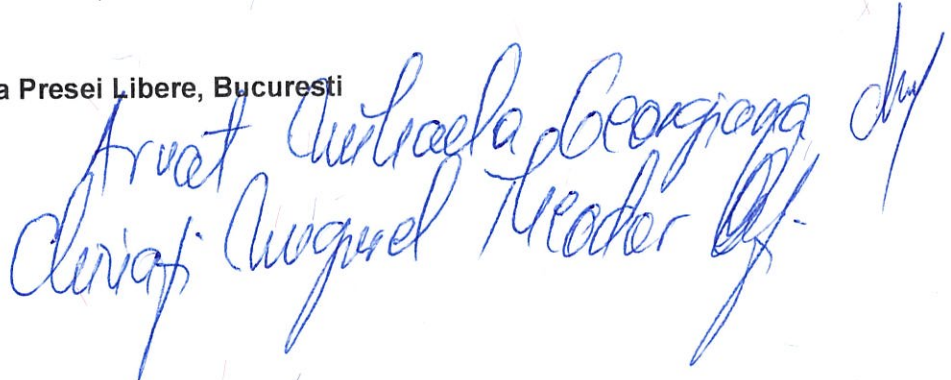 a Presei Libere, București
Arvat Mihaela Georgiana
Mugurel Theodor